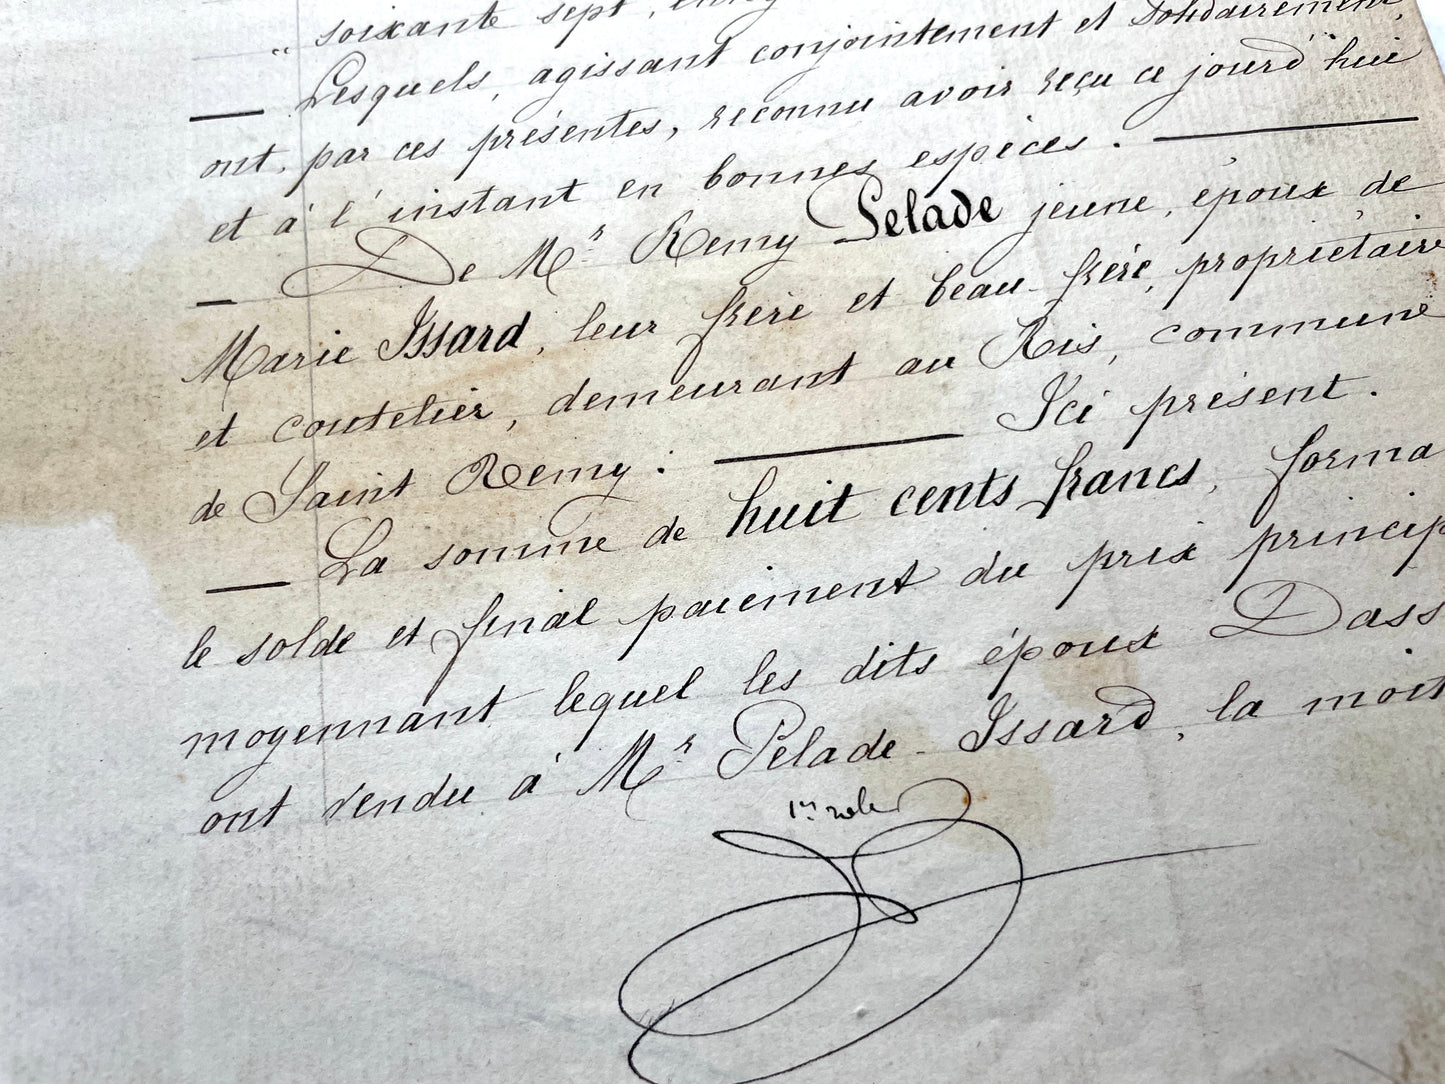 " soixante sept,
Lesquels, agissant conjointement et solidairement,
ont, par ces présentes, reconnu avoir reçu ce jourd'hui
et à l'instant en bonnes espèces.
De Mr Remy Pelade jeune, époux de
Marie Issard, leur frère et beau-frère, propriétaire
et coutelier, demeurant au Ris, commune
de Saint Remy: Ici présent.
La somme de huit cents francs, forma
le solde et final paiement du prix princip
moyennant lequel les dits époux Dass
ont vendu à Mr Pelade-Issard, la moit
1er role